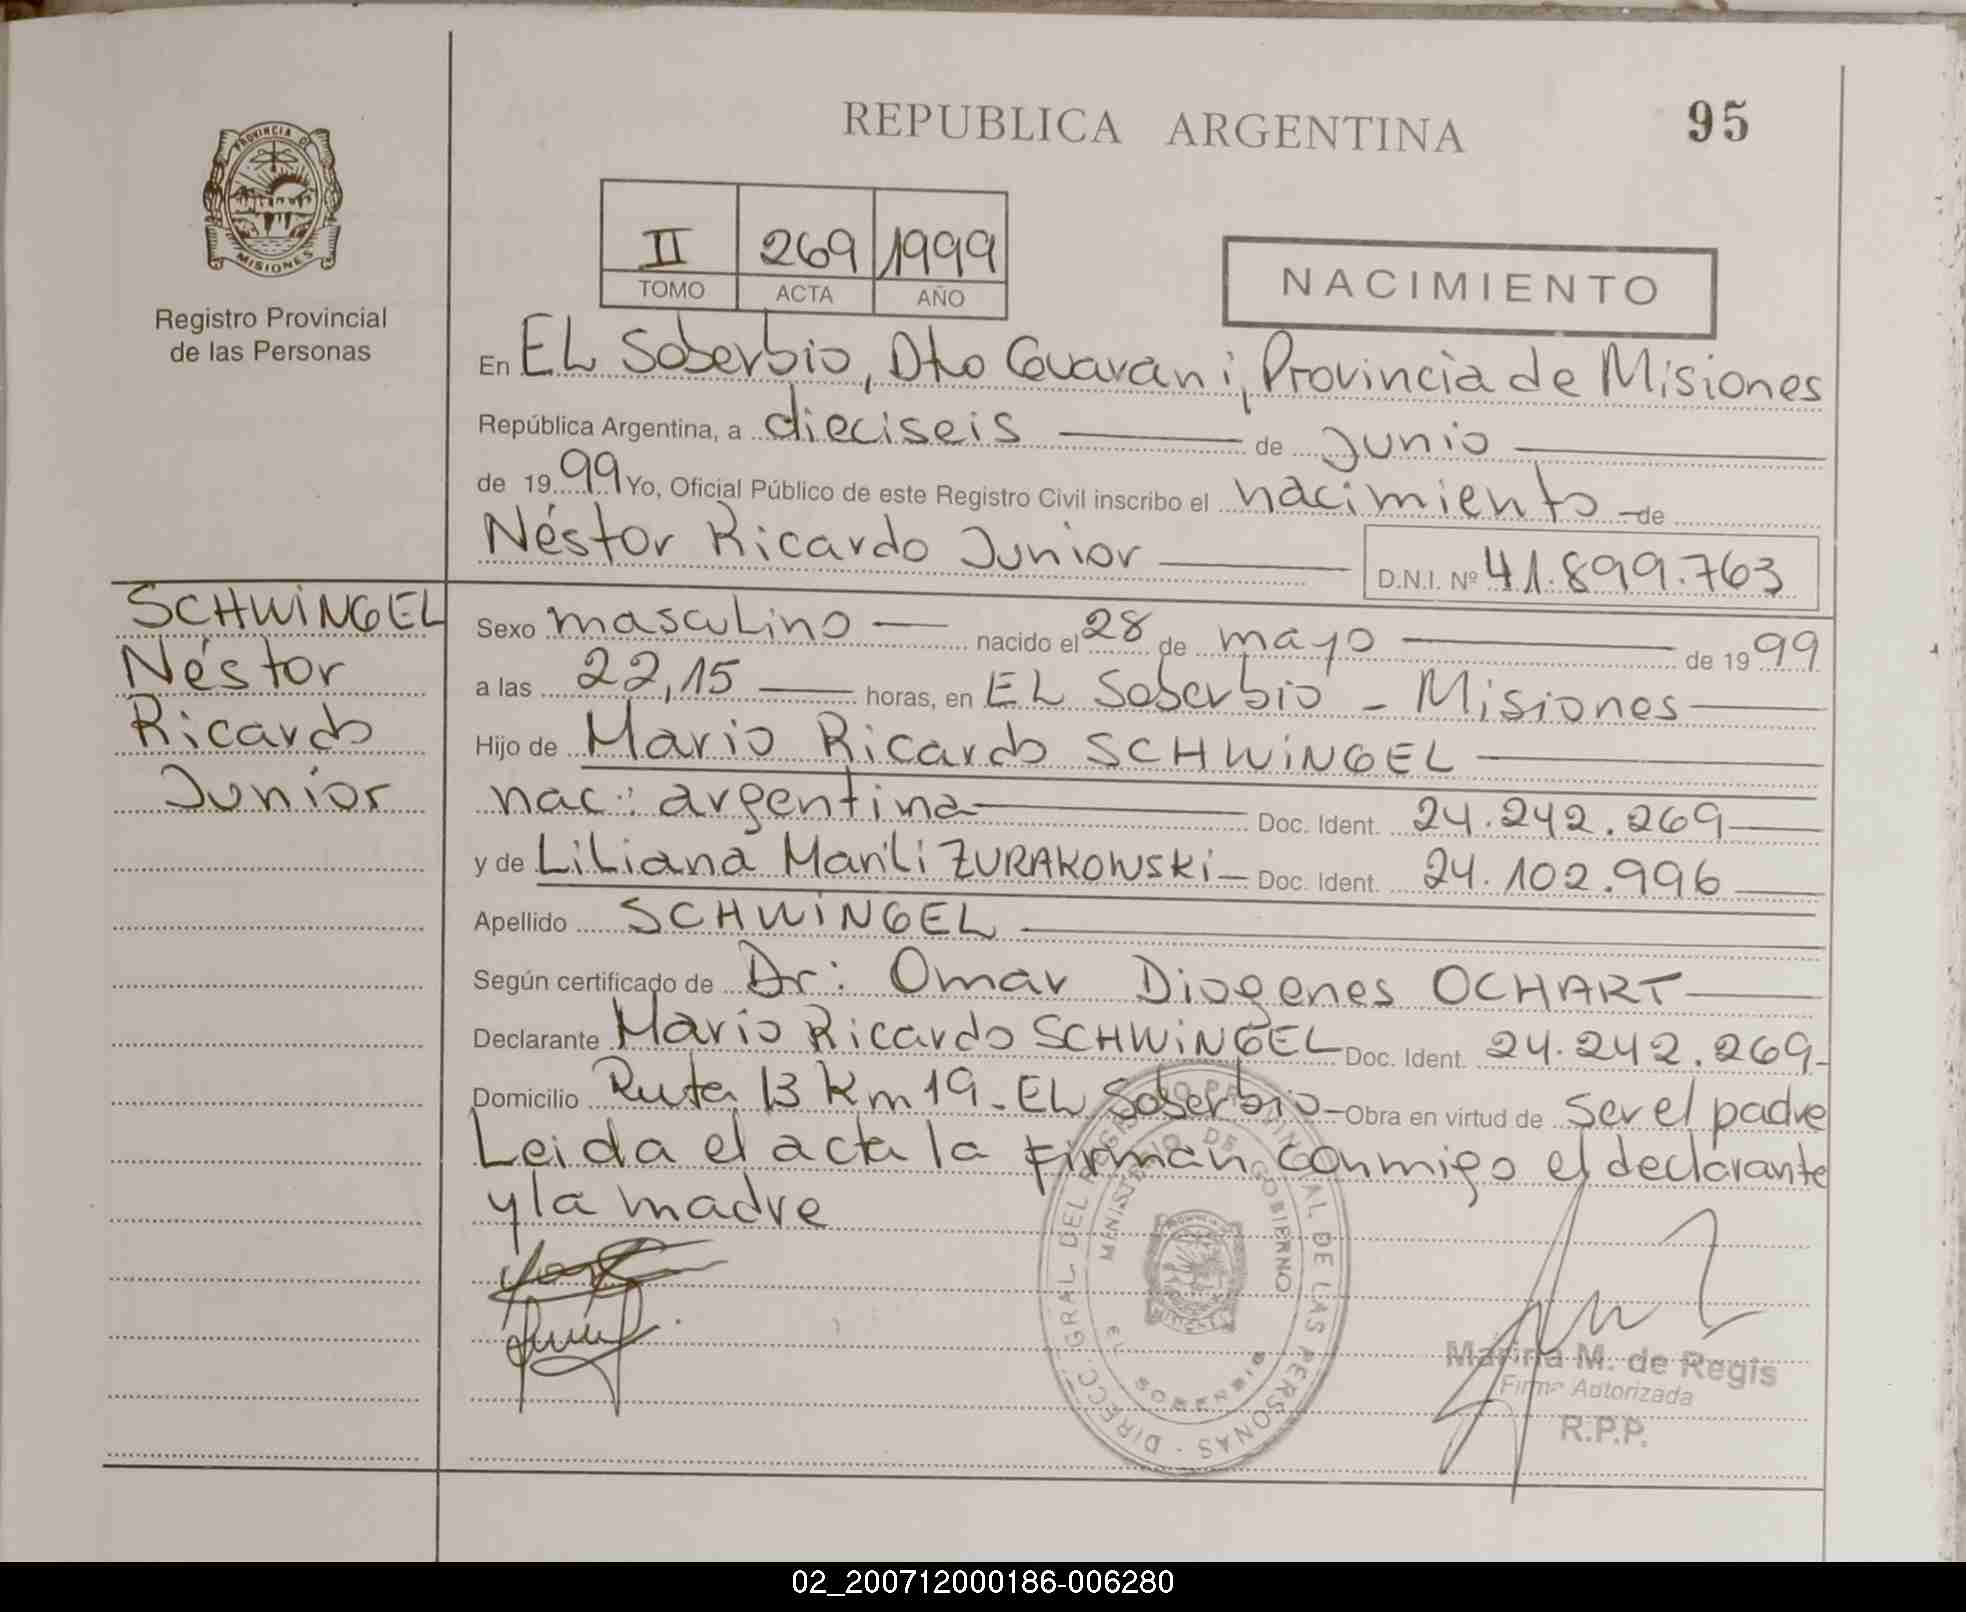 REPUBLICA ARGENTINA
95
PROVINCIA DE
MISIONES
Registro Provincial
de las Personas
II 269 1999
TOMO ACTA AÑO
NACIMIENTO
En EL Soberbio, Dto Guarani, Provincia de Misiones
República Argentina, a dieciseis de Junio
de 1999 Yo, Oficial Público de este Registro Civil inscribo el nacimiento de
Néstor Ricardo Junior
D.N.I. Nº 41.899.763
SCHWiNGEL
Néstor
Ricardo
Junior
Sexo masculino nacido el 28 de mayo de 1999
a las 22,15 horas, en EL Soberbio - Misiones
Hijo de Mario Ricardo SCHWiNGEL
nac: argentina Doc. Ident. 24.242.269
y de Liliana Marili ZURAKOWSKi Doc. Ident. 24.102.996
Apellido SCHWiNGEL
Según certificado de Dr: Omar Diogenes OCHART
Declarante Mario Ricardo SCHWiNGEL Doc. Ident. 24.242.269
Domicilio Ruta 13 Km 19 - EL Soberbio - Obra en virtud de ser el padre
Leida el acta la firman conmigo el declarante
y la madre
DIRECC. GRAL DEL REGISTRO PROVINCIAL DE LAS PERSONAS
MINISTERIO DE GOBIERNO
EL SOBERBIO
Marina M. de Regis
Firma Autorizada
R.P.P.
02_200712000186-006280